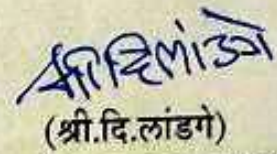 श्री दि लांडगे
(श्री.दि.लांडगे)